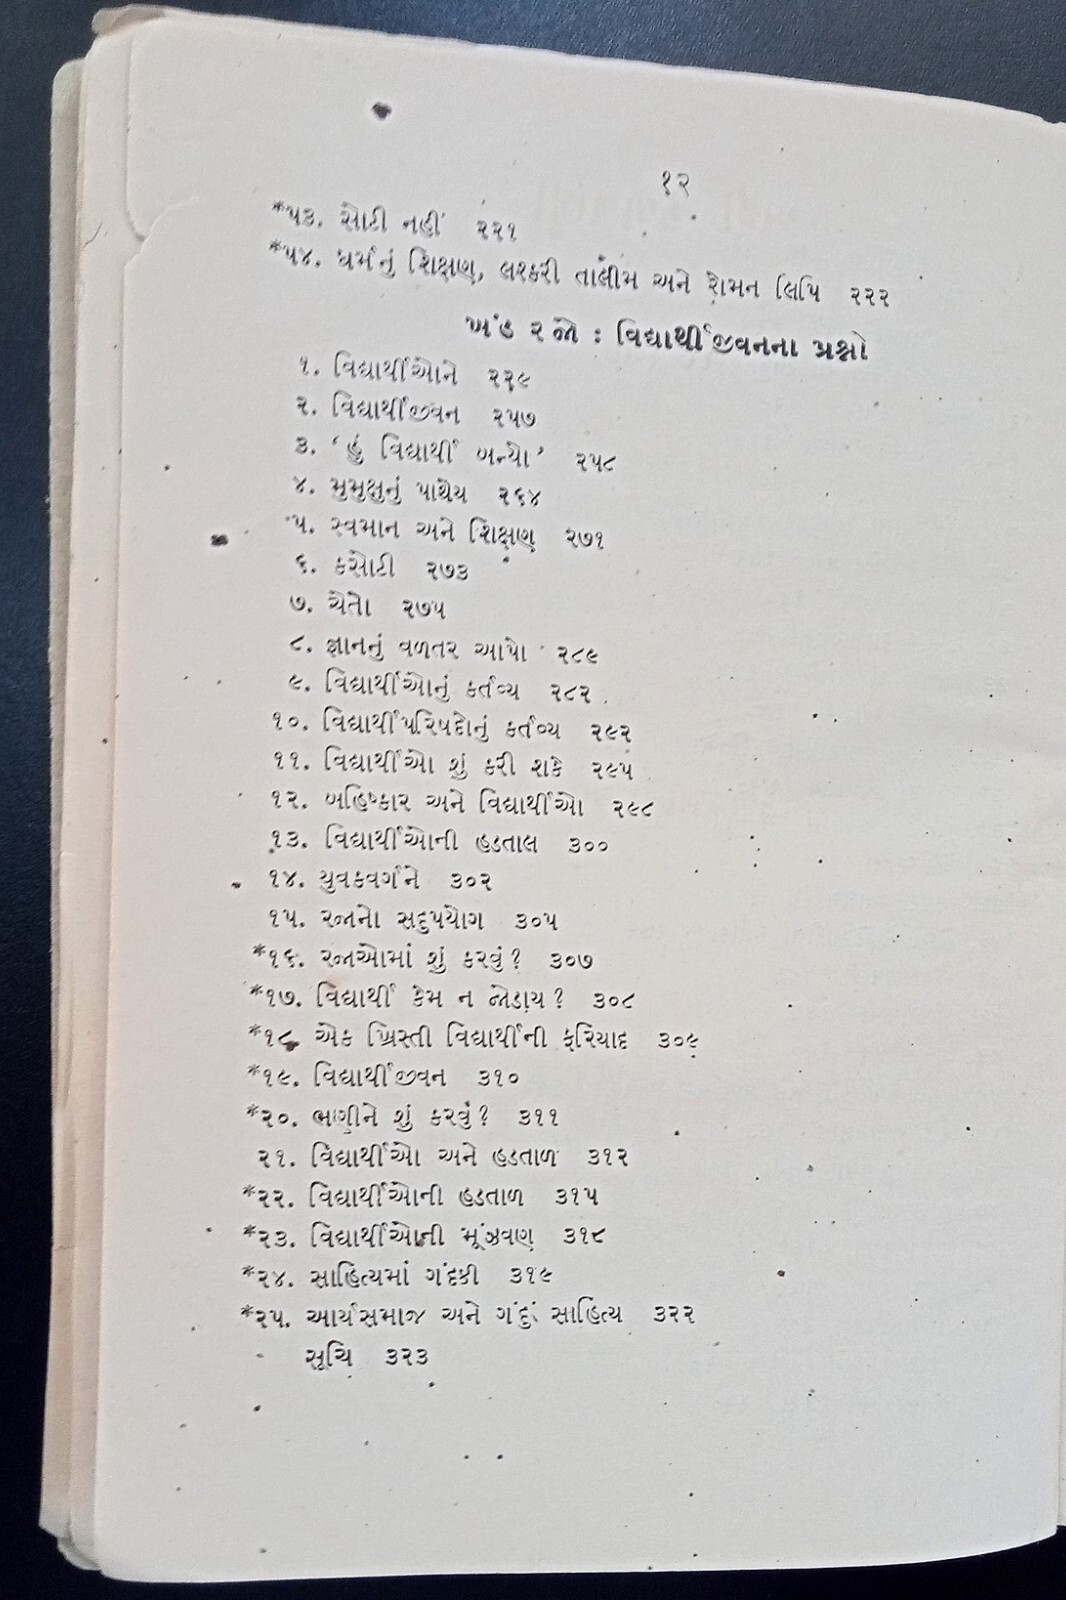 ૧૨
*૫૩. સોટી નહીં ૨૨૧
*૫૪. ધર્મનું શિક્ષણ, લશ્કરી તાલીમ અને રોમન લિપિ ૨૨૨
ખંડ ૨ જો : વિદ્યાર્થીજીવનના પ્રશ્નો
૧. વિદ્યાર્થીઓને ૨૨૯
૨. વિદ્યાર્થીજીવન ૨૫૭
૩. ‘હું વિદ્યાર્થી બન્યો’ ૨૫૮
૪. મુમુક્ષુનું પાથેય ૨૬૪
૫. સ્વમાન અને શિક્ષણ ૨૭૧
૬. કસોટી ૨૭૩
૭. ચેતો ૨૭૫
૮. જ્ઞાનનું વળતર આપો ૨૮૯
૯. વિદ્યાર્થીઓનું કર્તવ્ય ૨૮૨
૧૦. વિદ્યાર્થીપરિષદોનું કર્તવ્ય ૨૯૨
૧૧. વિદ્યાર્થીઓ શું કરી શકે ૨૯૫
૧૨. બહિષ્કાર અને વિદ્યાર્થીઓ ૨૯૮
૧૩. વિદ્યાર્થીઓની હડતાલ ૩૦૦
૧૪. યુવકવર્ગને ૩૦૨
૧૫. રજાનો સદુપયોગ ૩૦૫
*૧૬. રજાઓમાં શું કરવું? ૩૦૭
*૧૭. વિદ્યાર્થી કેમ ન જોડાય? ૩૦૮
*૧૮. એક ખ્રિસ્તી વિદ્યાર્થીની ફરિયાદ ૩૦૯
*૧૯. વિદ્યાર્થીજીવન ૩૧૦
*૨૦. ભણીને શું કરવું? ૩૧૧
૨૧. વિદ્યાર્થીઓ અને હડતાળ ૩૧૨
*૨૨. વિદ્યાર્થીઓની હડતાળ ૩૧૫
*૨૩. વિદ્યાર્થીઓની મૂંઝવણ ૩૧૮
*૨૪. સાહિત્યમાં ગંદકી ૩૧૯
*૨૫. આર્યસમાજ અને ગંદું સાહિત્ય ૩૨૨
સૂચિ ૩૨૩